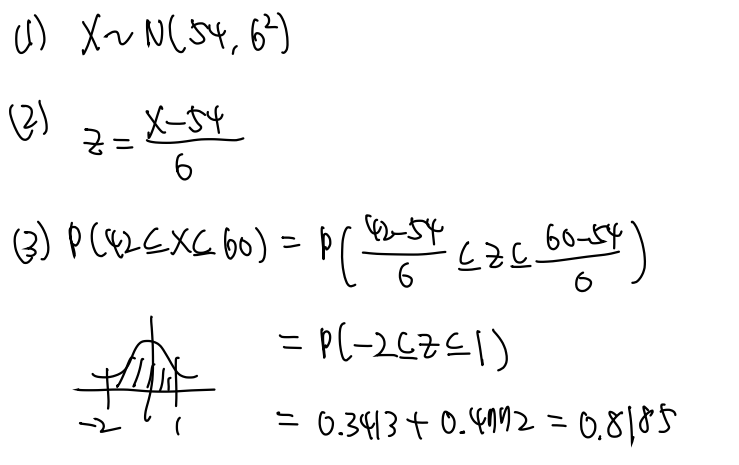 (1) X~N(54, 6²)
(2) Z = (X-54)/6
(3) P(42≤X≤60) = P((42-54)/6 ≤ Z ≤ (60-54)/6)
= P(-2≤Z≤1)
-2 1
= 0.3413 + 0.4772 = 0.8185